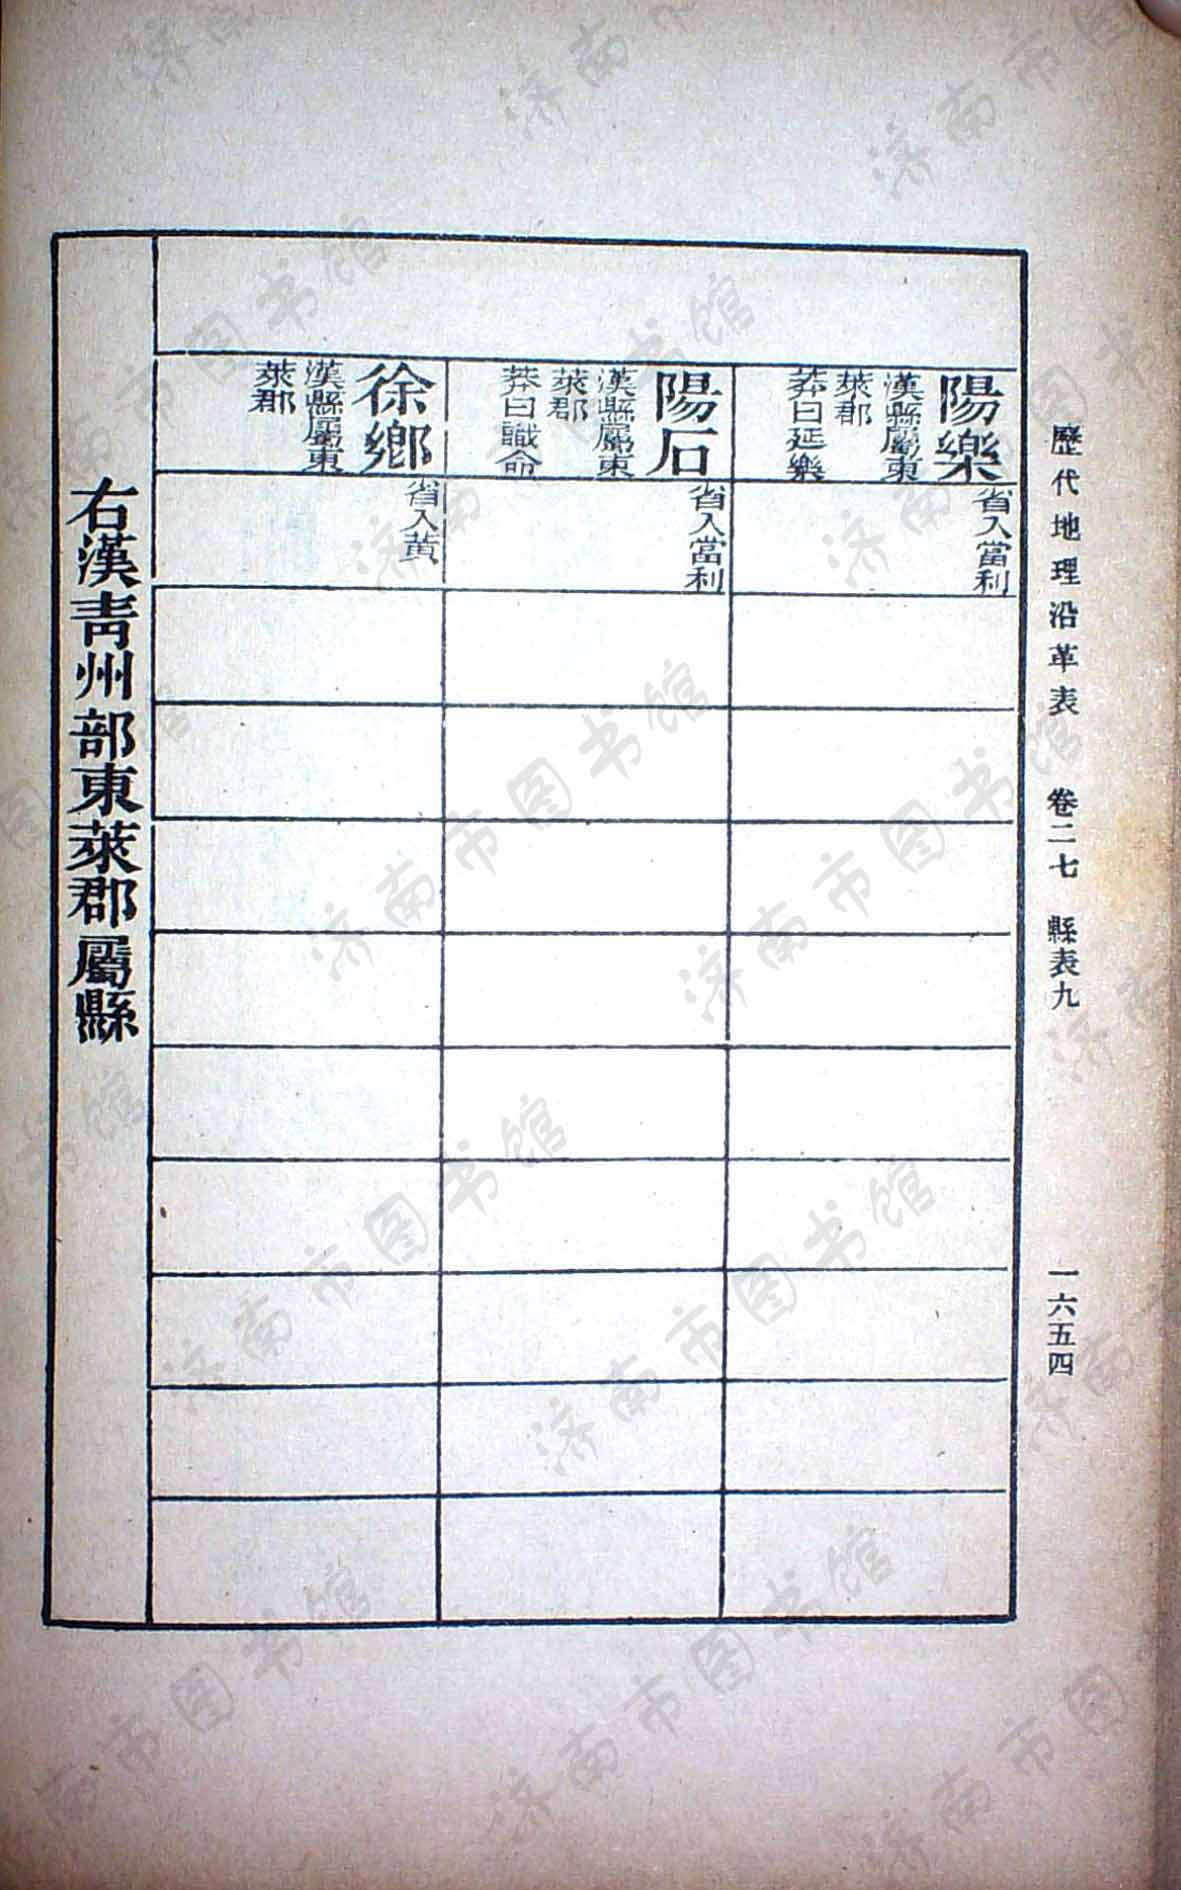 歷代地理沿革表 卷二七 縣表九 一六五四
陽樂
漢縣屬東
萊郡
莽曰延樂
省入當利
陽石
漢縣屬東
萊郡
莽曰識命
省入當利
徐鄉
漢縣屬東
萊郡
省入黃
右漢靑州部東萊郡屬縣
济南市图书馆